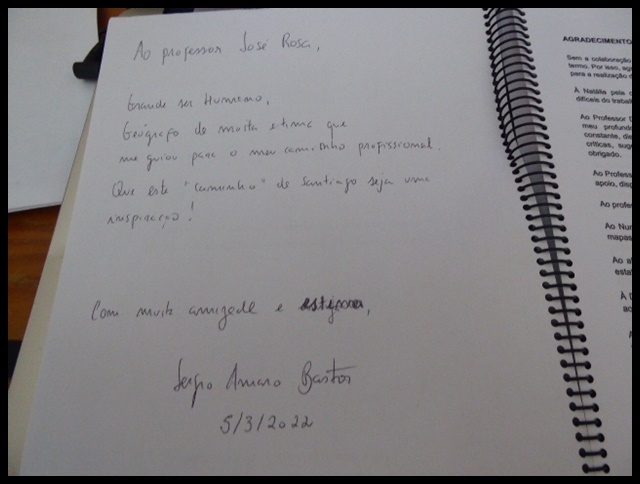 Ao professor José Rosa,
Grande ser Humano,
Geógrafo de muita estima que
me guiou para o meu caminho profissional.
Que este "caminho" de Santiago seja uma
inspiração!
Com muita amizade e estima,
Sergio Amaro Bastos
5/3/2022
AGRADECIMENTO
Sem a colaboração
termo. Por isso, ag
para a realização d
À Natália pela c
difíceis do trabal
Ao Professor D
meu profund
constante, dis
críticas, sug
obrigado.
Ao Profess
apoio, disc
Ao profe
Ao Nun
mapas
Ao a
estat
À D